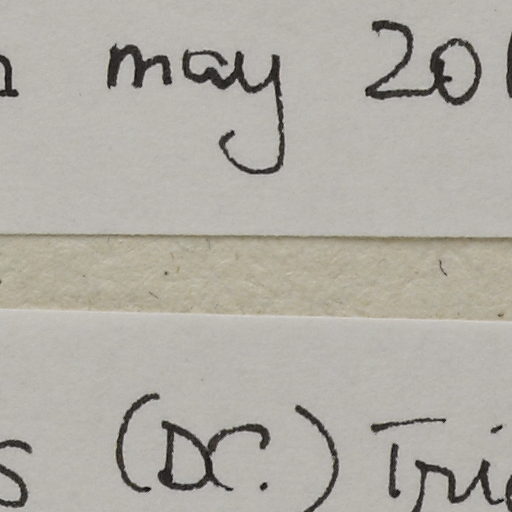 may 20
s (DC.) Tri